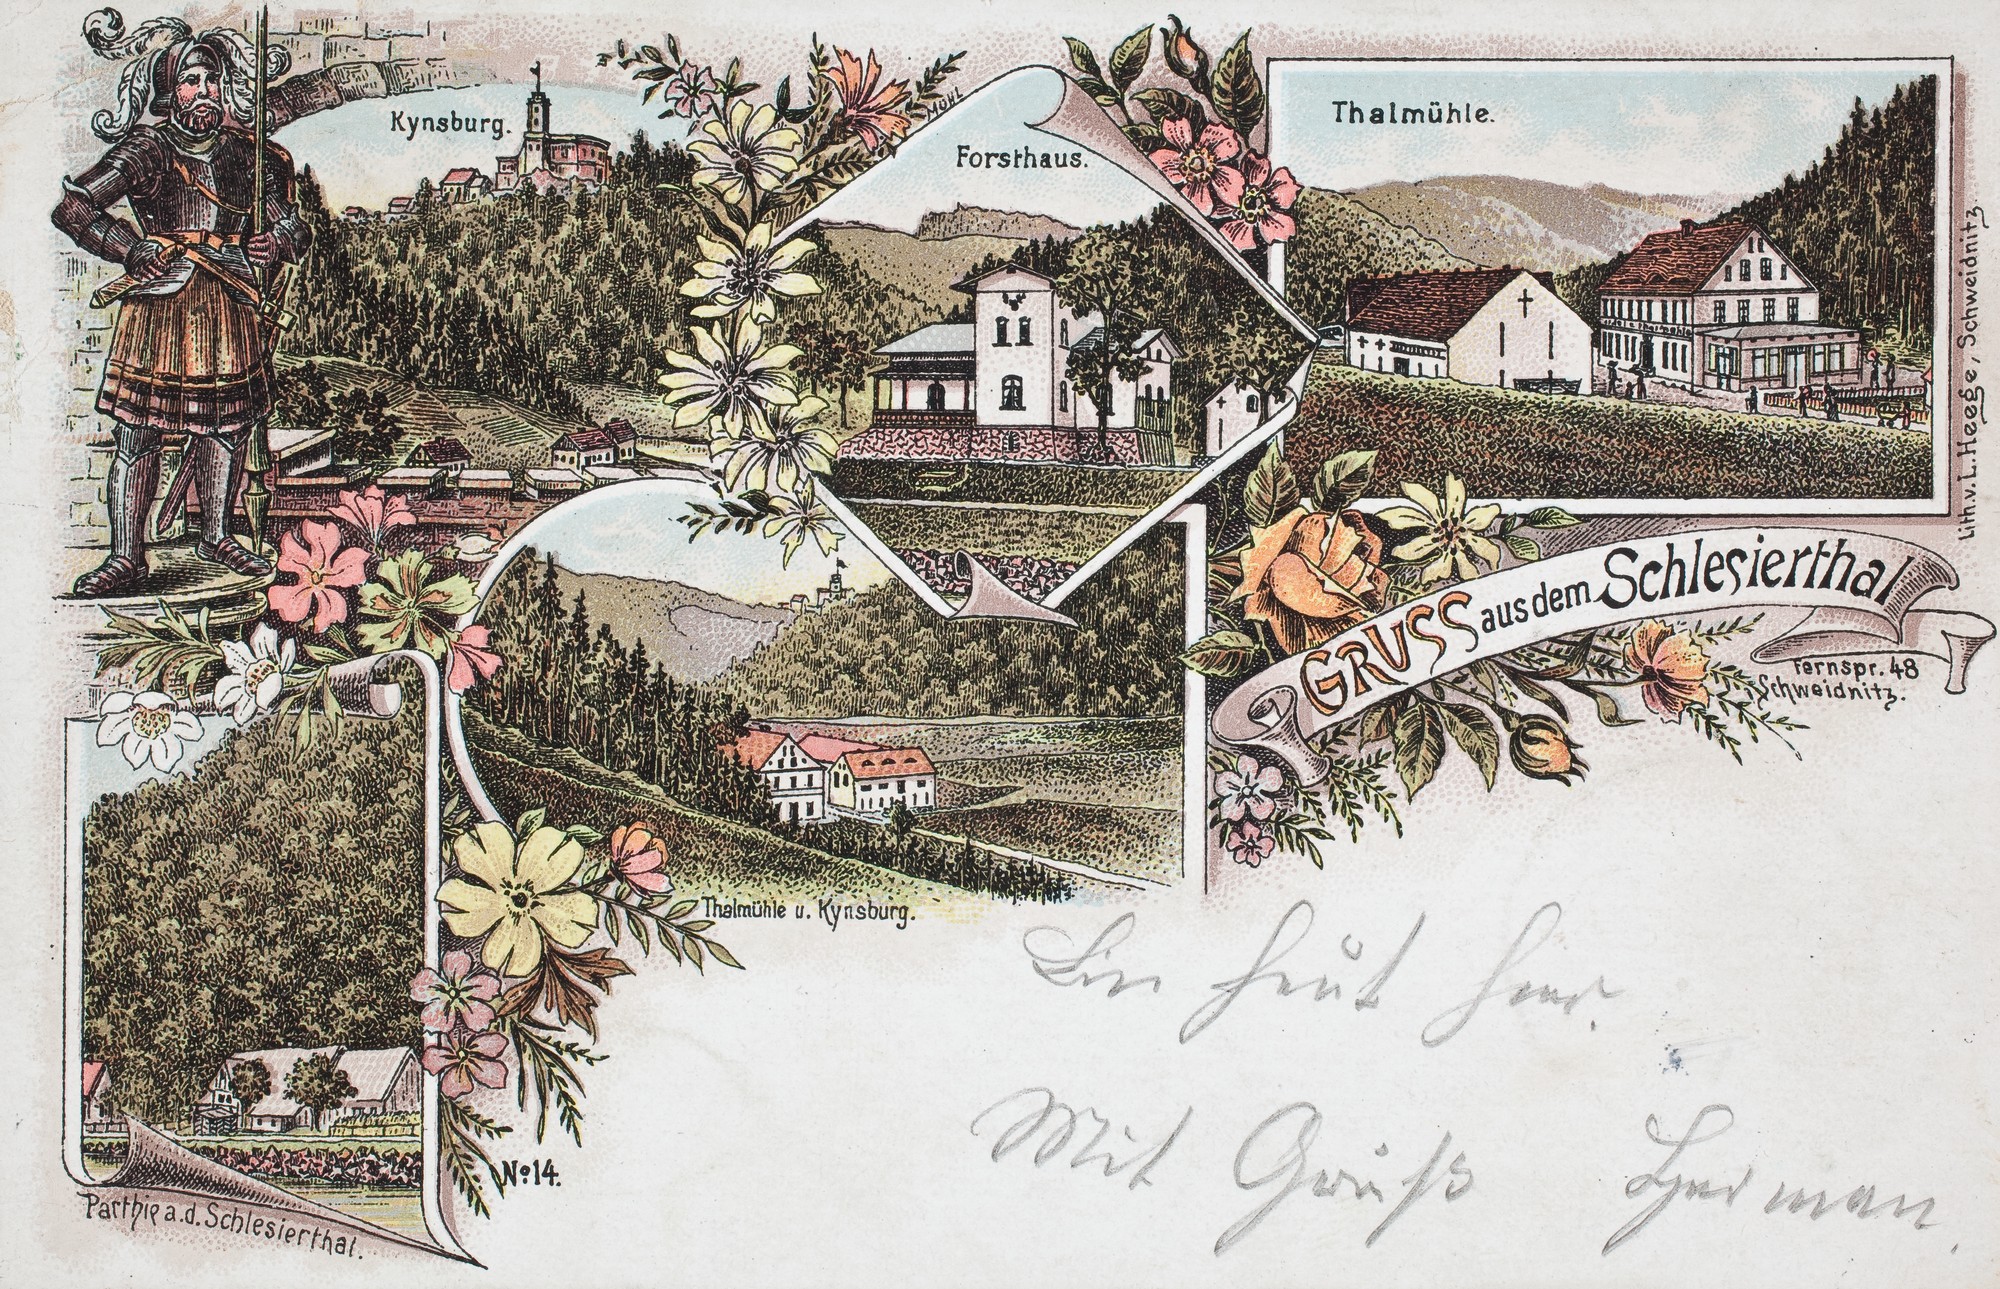 Kynsburg.
MÜHL
Forsthaus.
Thalmühle.
Lith. v. L. Heege, Schweidnitz.
GRUSS aus dem Schlesierthal
Fernspr. 48
Schweidnitz.
Thalmühle u. Kynsburg.
No 14.
Parthie a. d. Schlesierthal.
Bin heut hier.
Mit Gruß Herman